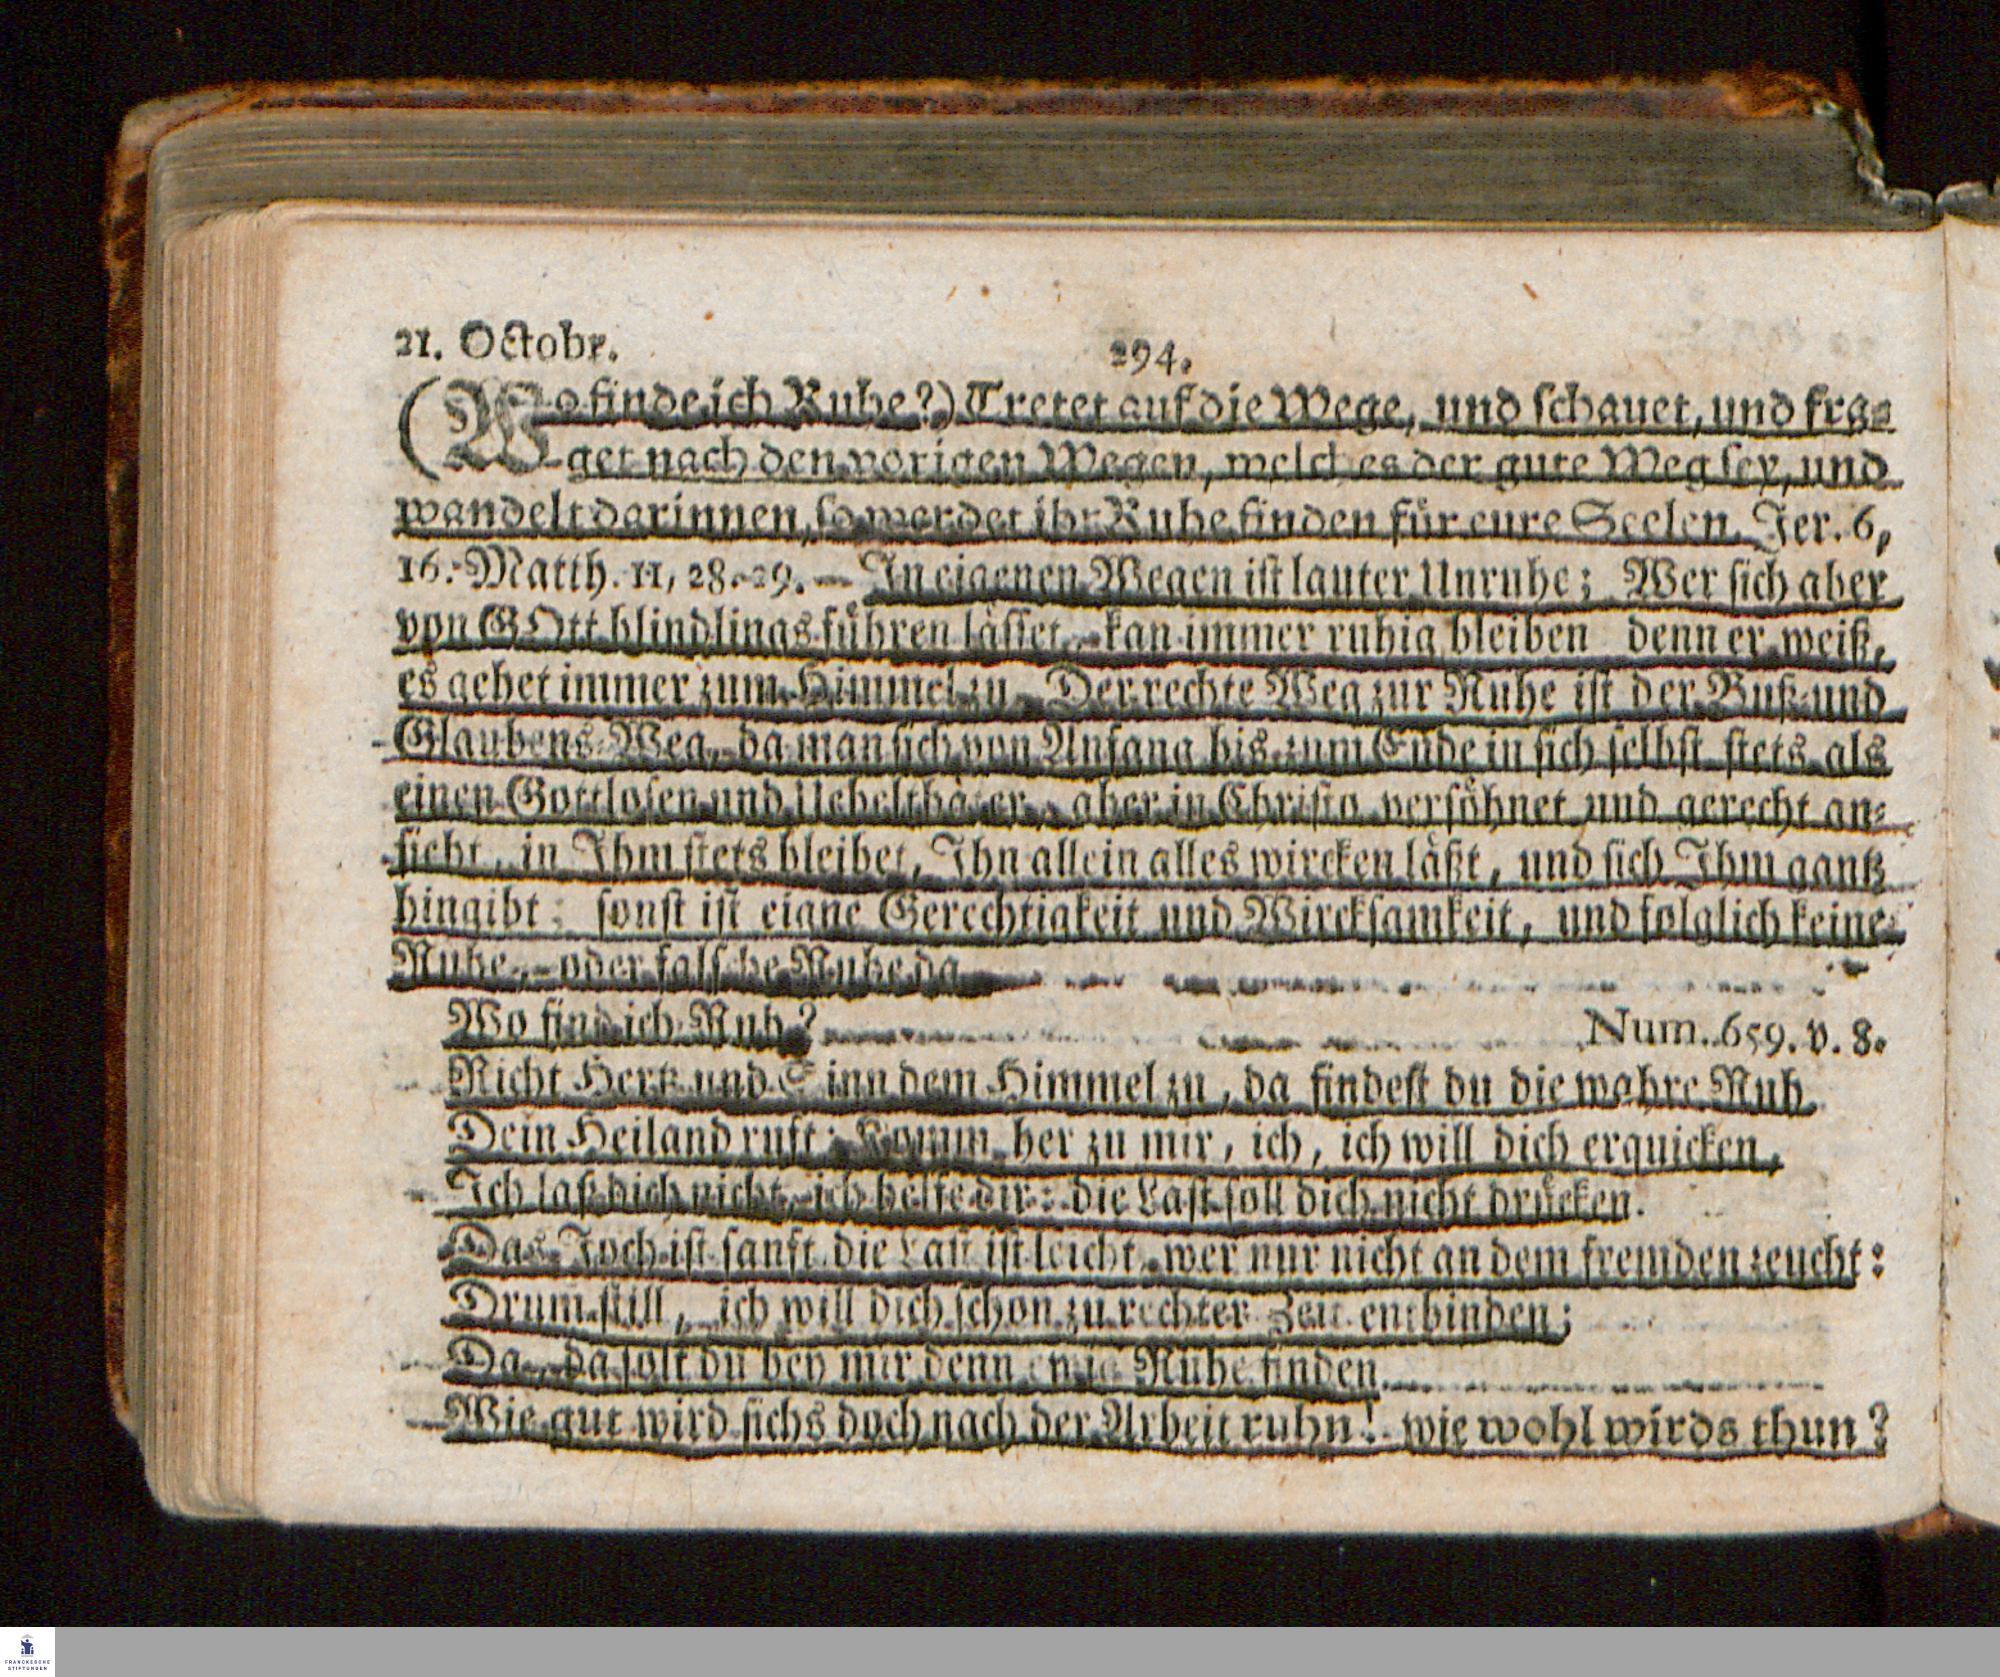 21. Octobr.
294.
(Wo finde ich Ruhe?) Tretet auf die Wege, und schauet, und fra-
get nach den vorigen Wegen, welches der gute Weg sey, und
wandelt darinnen, so werdet ihr Ruhe finden für eure Seelen. Jer. 6,
16. Matth. 11, 28. 29. — In eigenen Wegen ist lauter Unruhe; Wer sich aber
von GOtt blindlings führen lässet, kan immer ruhig bleiben denn er weiß,
es gehet immer zum Himmel zu. Der rechte Weg zur Ruhe ist der Buß- und
Glaubens-Weg, da man sich von Anfang bis zum Ende in sich selbst stets als
einen Gottlosen und Uebelthäter, aber in Christo versöhnet und gerecht an-
sieht, in Ihm stets bleibet, Ihn allein alles wircken läßt, und sich Ihm gantz
hingibt; sonst ist eigne Gerechtigkeit und Wircksamkeit, und folglich keine
Ruhe, oder falsche Ruhe da
Wo find ich Ruh? Num. 659. v. 8.
Richt Hertz und Sinn dem Himmel zu, da findest du die wahre Ruh
Dein Heiland ruft: Komm her zu mir, ich, ich will dich erquicken,
Ich laß dich nicht, ich helfe dir: die Last soll dich nicht drücken.
Das Joch ist sanft die Last ist leicht, wer nur nicht an dem fremden zeucht:
Drum still, ich will dich schon zu rechter Zeit entbinden;
Da, da solt du bey mir denn ewig Ruhe finden.
Wie gut wird sichs doch nach der Arbeit ruhn! wie wohl wirds thun?
FRANCKESCHE
STIFTUNGEN